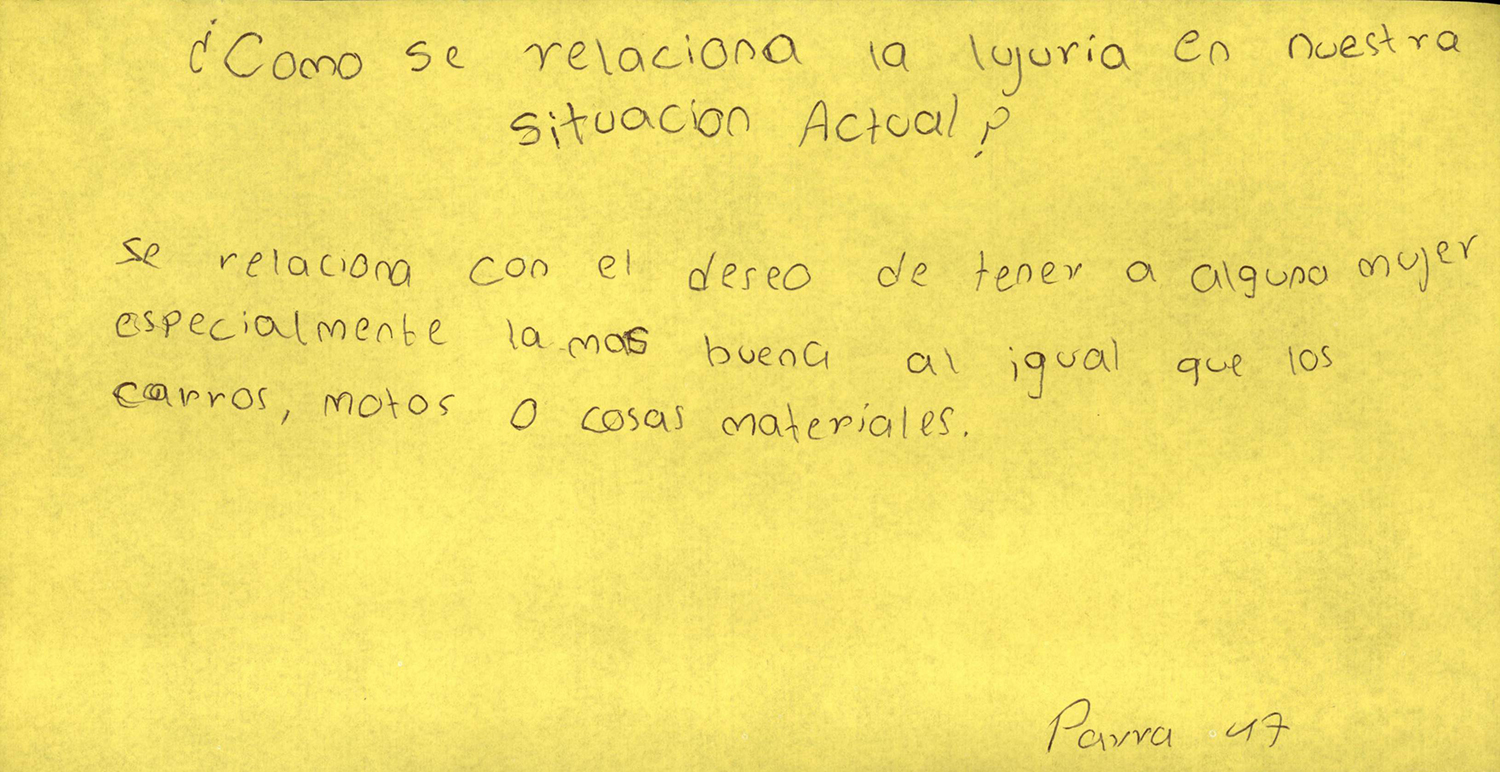 ¿Como se relaciona la lujuria en nuestra
situacion Actual?
se relaciona con el deseo de tener a alguna mujer
especialmente la mas buena al igual que los
carros, motos o cosas materiales.
Parra 47